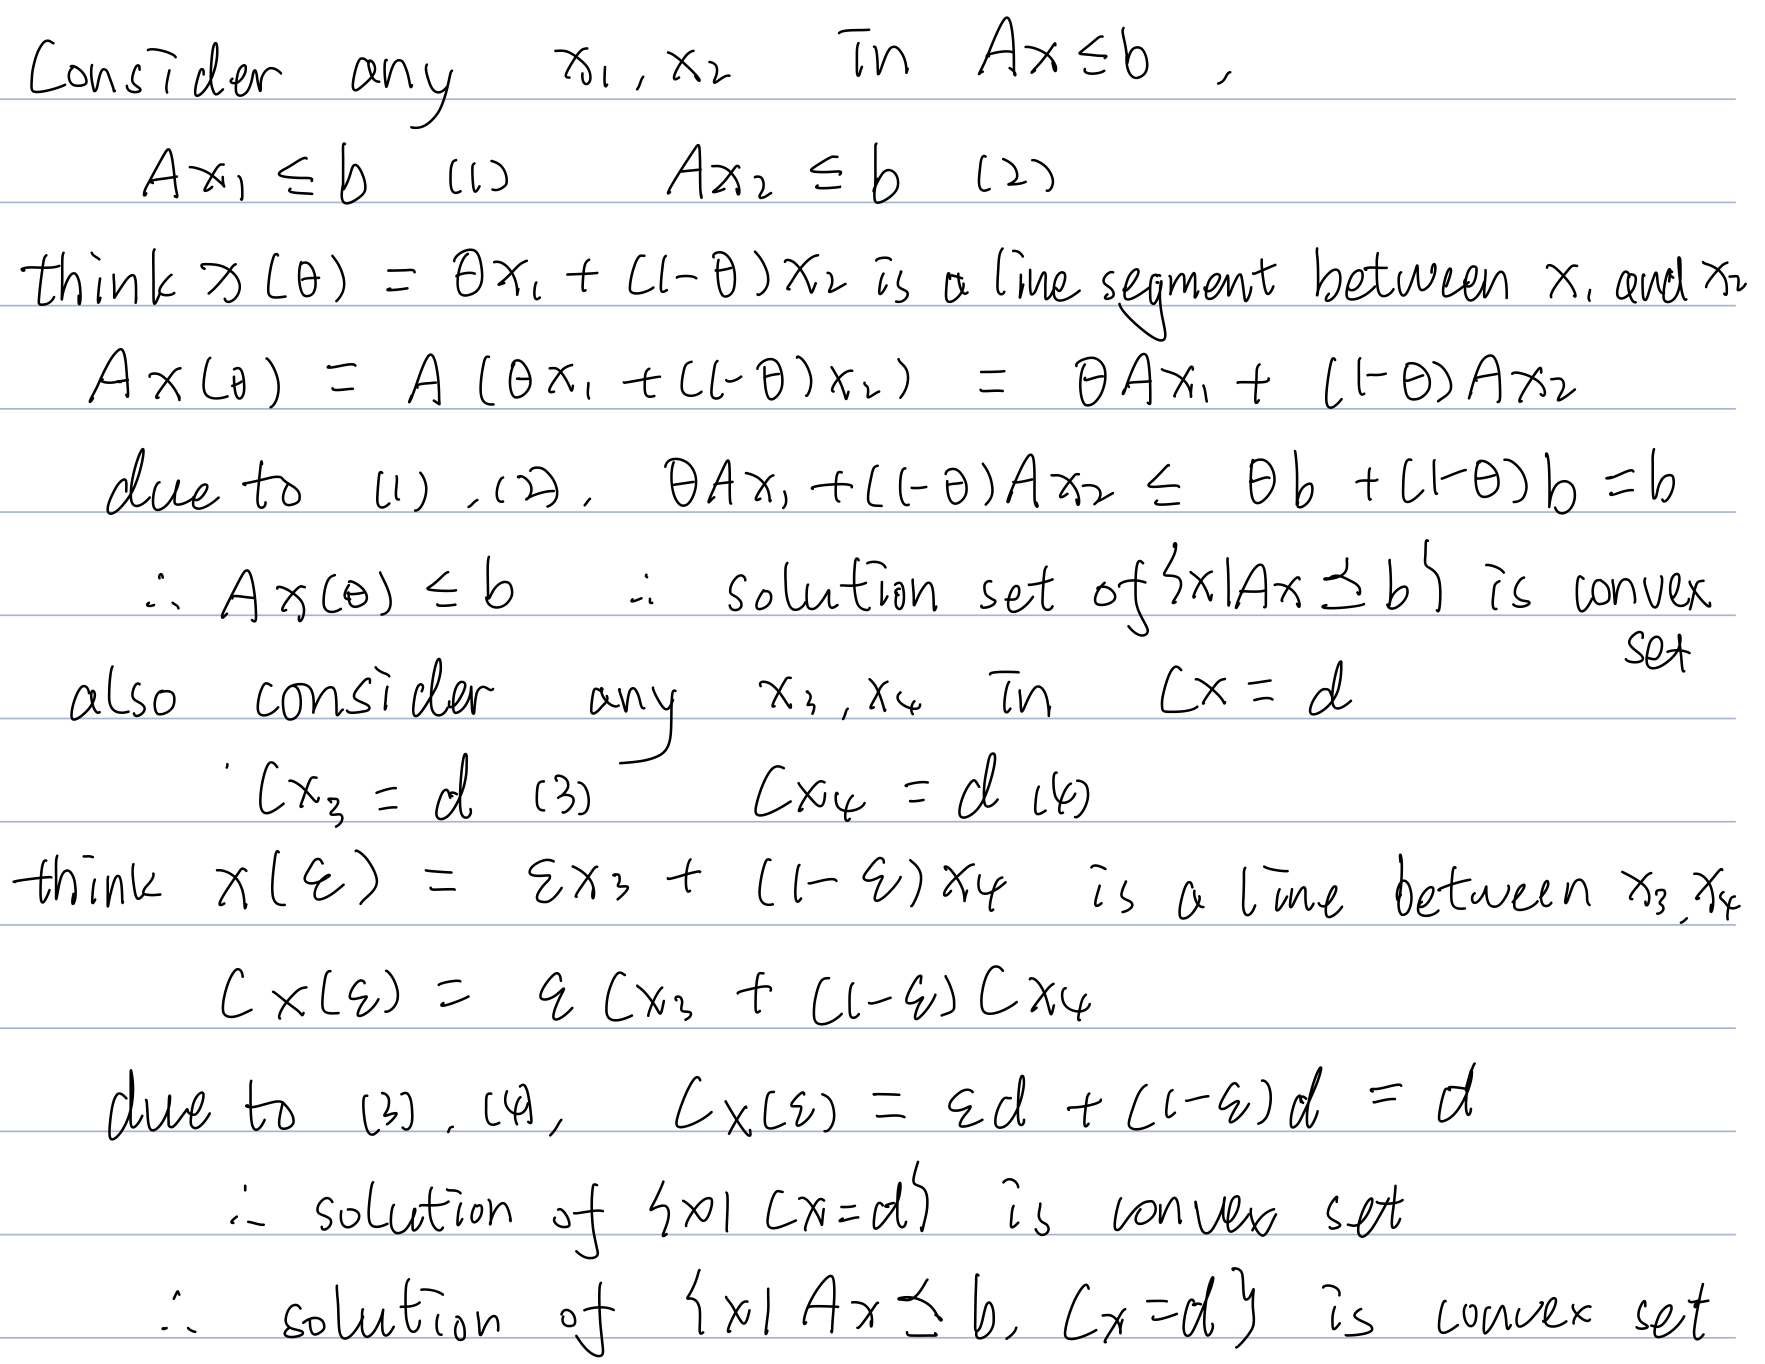 Consider any x₁, x₂ in Ax ≤ b ,
Ax₁ ≤ b (1) Ax₂ ≤ b (2)
think x(θ) = θx₁ + (1-θ)x₂ is a line segment between x₁ and x₂
Ax(θ) = A(θx₁ + (1-θ)x₂) = θAx₁ + (1-θ)Ax₂
due to (1), (2), θAx₁ + (1-θ)Ax₂ ≤ θb + (1-θ)b = b
∴ Ax(θ) ≤ b ∴ solution set of {x|Ax ⪯ b} is convex
set
also consider any x₃, x₄ in Cx = d
Cx₃ = d (3) Cx₄ = d (4)
think x(ε) = εx₃ + (1-ε)x₄ is a line between x₃, x₄
Cx(ε) = εCx₃ + (1-ε)Cx₄
due to (3), (4), Cx(ε) = εd + (1-ε)d = d
∴ solution of {x| Cx=d} is convex set
∴ solution of {x| Ax ⪯ b, Cx=d} is convex set